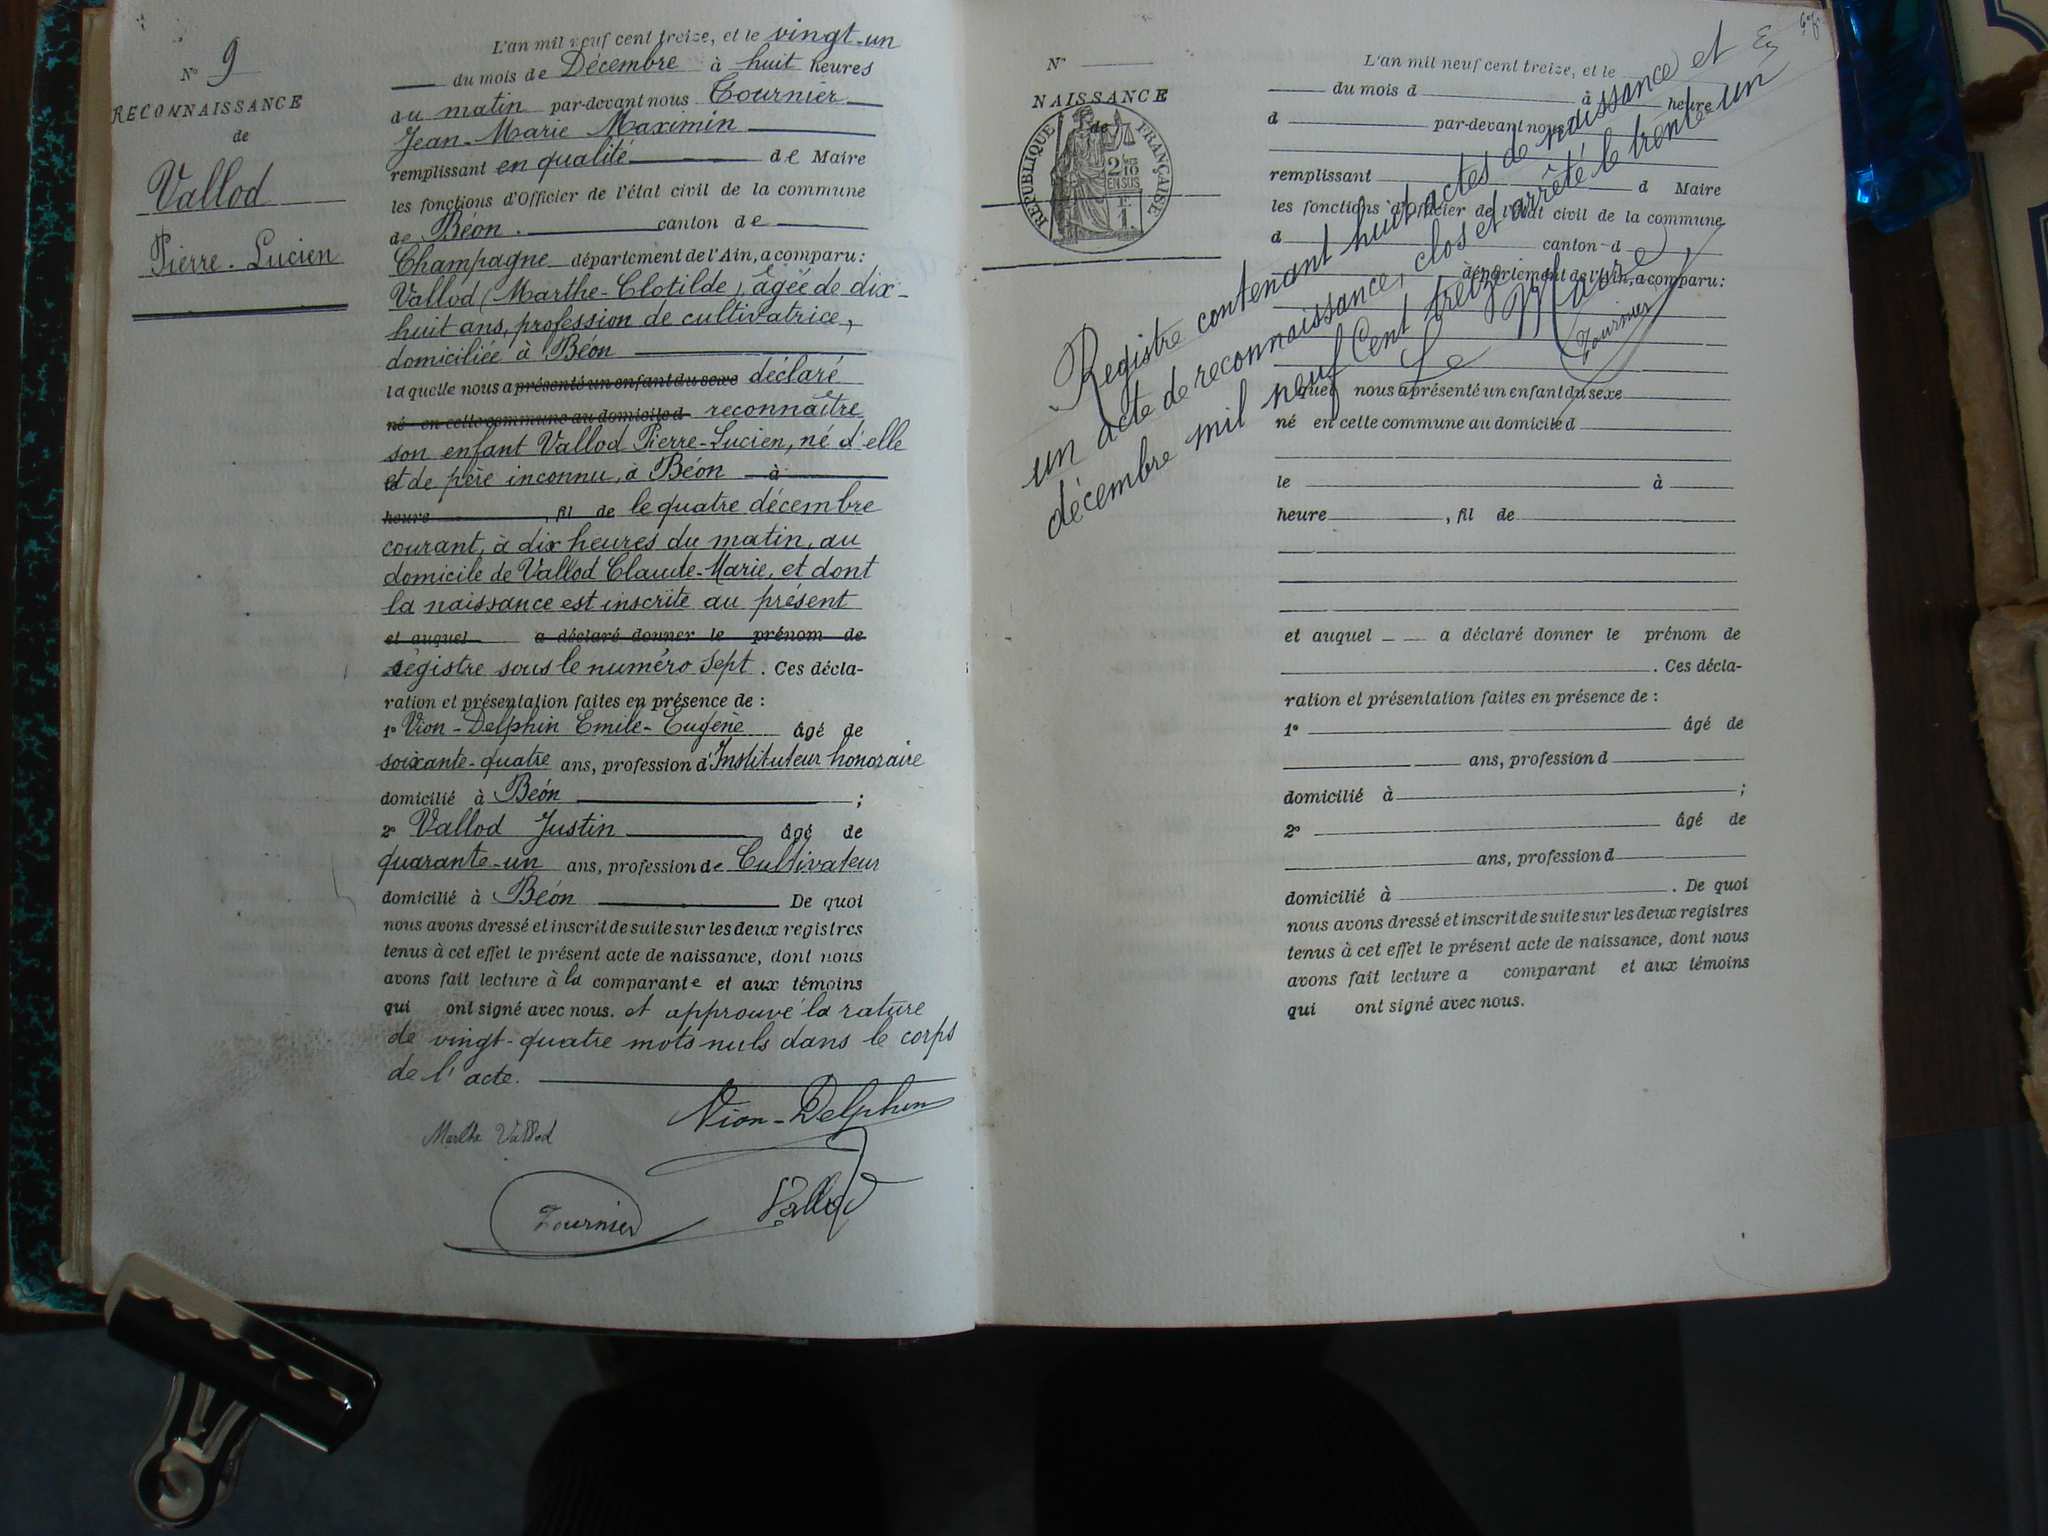 N° 9
RECONNAISSANCE
de
Vallod
Pierre-Lucien
L'an mil neuf cent treize, et le vingt-un
du mois de Décembre à huit heures
du matin par-devant nous Tournier
Jean-Marie Maximin
remplissant en qualité de Maire
les fonctions d'Officier de l'état civil de la commune
de Béon. canton de
Champagne département de l'Ain, a comparu:
Vallod (Marthe-Clotilde), âgée de dix-
huit ans, profession de cultivatrice,
domiciliée à Béon
laquelle nous a présenté un enfant du sexe déclaré
né en cette commune au domicile d reconnaître
son enfant Vallod Pierre-Lucien, né d'elle
et de père inconnu, à Béon à
heure , fil de le quatre décembre
courant, à dix heures du matin, au
domicile de Vallod Claude-Marie, et dont
la naissance est inscrite au présent
et auquel a déclaré donner le prénom de
régistre sous le numéro sept. Ces décla-
ration et présentation faites en présence de :
1° Vion-Delphin Emile-Eugène âgé de
soixante-quatre ans, profession d'Instituteur honoraire
domicilié à Béon ;
2° Vallod Justin âgé de
quarante-un ans, profession de Cultivateur
domicilié à Béon De quoi
nous avons dressé et inscrit de suite sur les deux registres
tenus à cet effet le présent acte de naissance, dont nous
avons fait lecture à la comparante et aux témoins
qui ont signé avec nous. et approuvé la rature
de vingt-quatre mots nuls dans le corps
de l'acte.
Vion-Delphin
Marthe Vallod
Vallod
Tournier
N°
NAISSANCE
de
RÉPUBLIQUE FRANÇAISE
2/10
EN SUS
1
L'an mil neuf cent treize, et le
du mois d à heure
d par-devant nous
remplissant d Maire
les fonctions d'Officier de l'état civil de la commune
d canton d
département de l'Ain, a comparu:
Registre contenant huit actes de naissance et
un acte de reconnaissance, clos et arrêté le trente un
décembre mil neuf cent treize
Le Maire
Tournier
quel nous a présenté un enfant du sexe
né en cette commune au domicile d
le à
heure , fil de
et auquel a déclaré donner le prénom de
. Ces décla-
ration et présentation faites en présence de :
1° âgé de
ans, profession d
domicilié à ;
2° âgé de
ans, profession d
domicilié à . De quoi
nous avons dressé et inscrit de suite sur les deux registres
tenus à cet effet le présent acte de naissance, dont nous
avons fait lecture a comparant et aux témoins
qui ont signé avec nous.